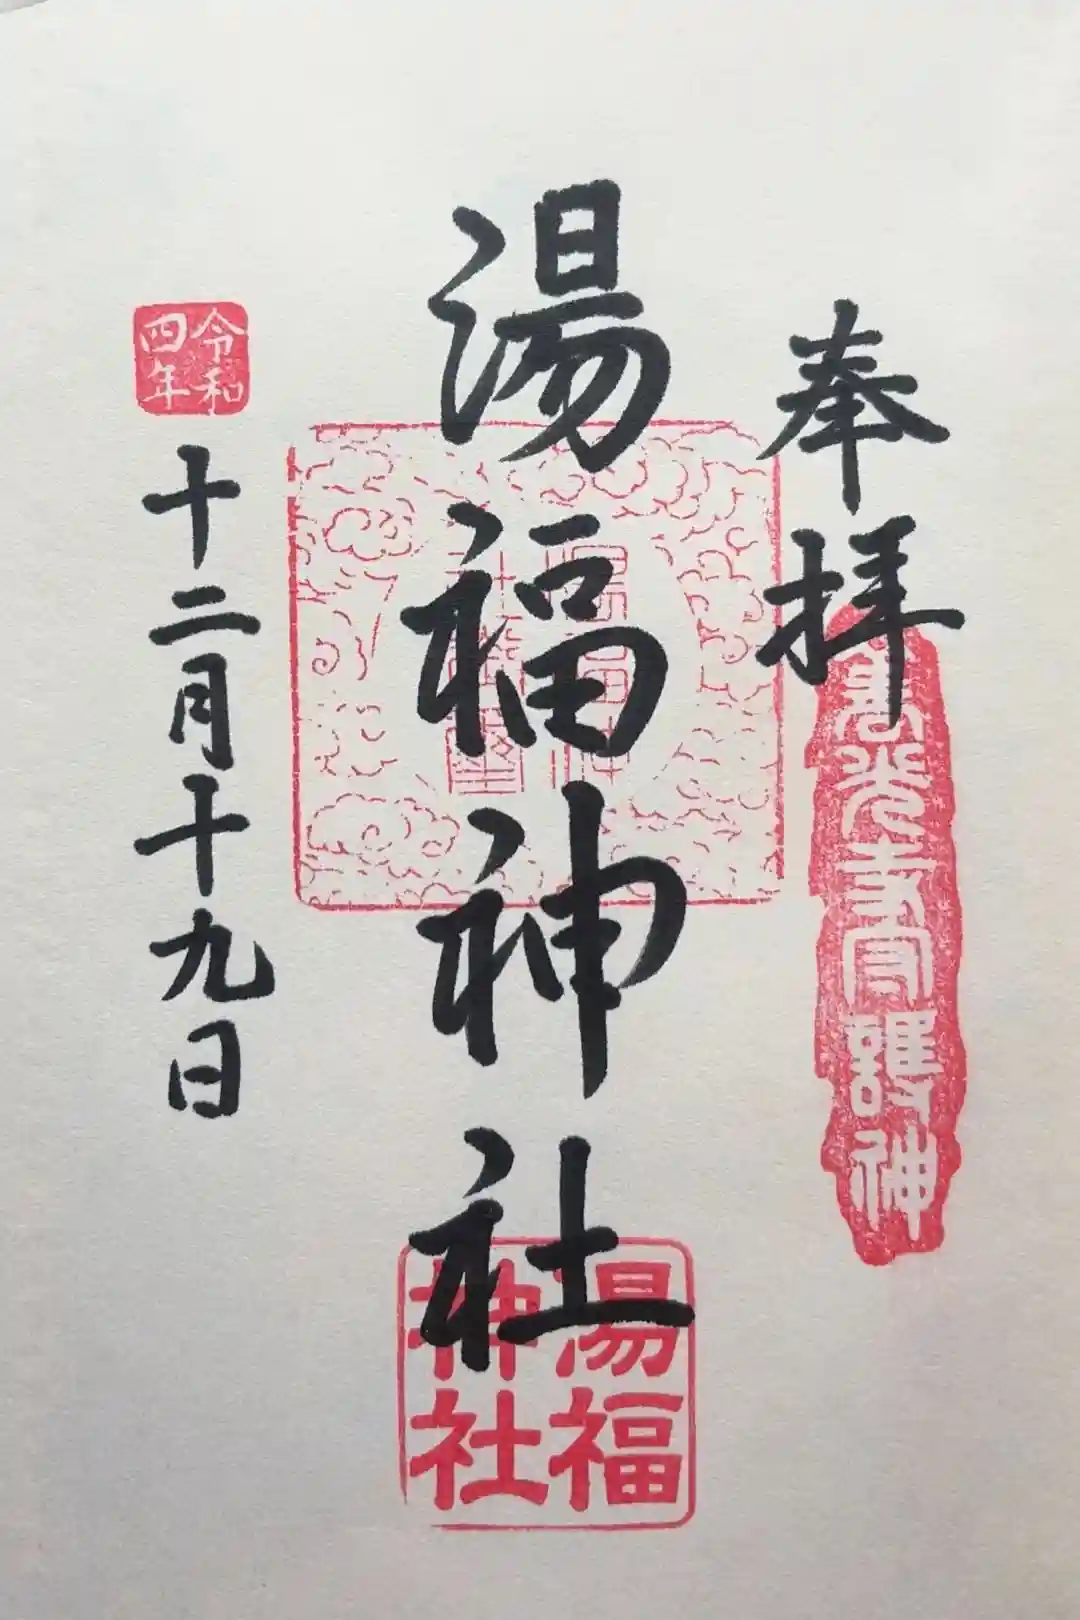 奉拝
善光寺守護神
湯福神社
湯福
神社
令和
四年
十二月十九日